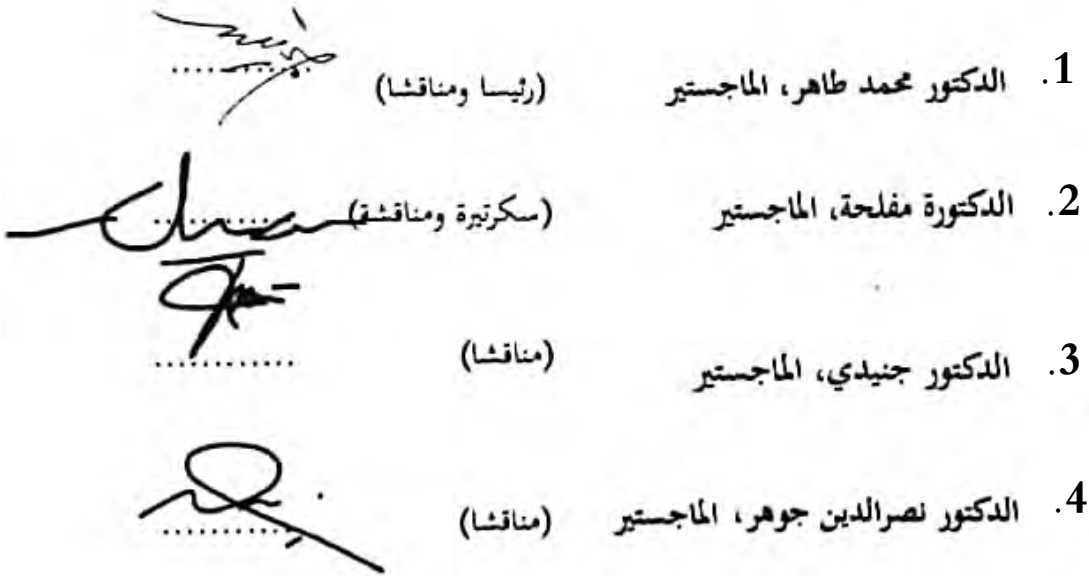 1. الدكتور محمد طاهر، الماجستير (رئيسا ومناقشا) ..............
2. الدكتورة مفلحة، الماجستير (سكرتيرة ومناقشة) ..............
3. الدكتور جنيدي، الماجستير (مناقشا) ..............
4. الدكتور نصرالدين جوهر، الماجستير (مناقشا) ..............